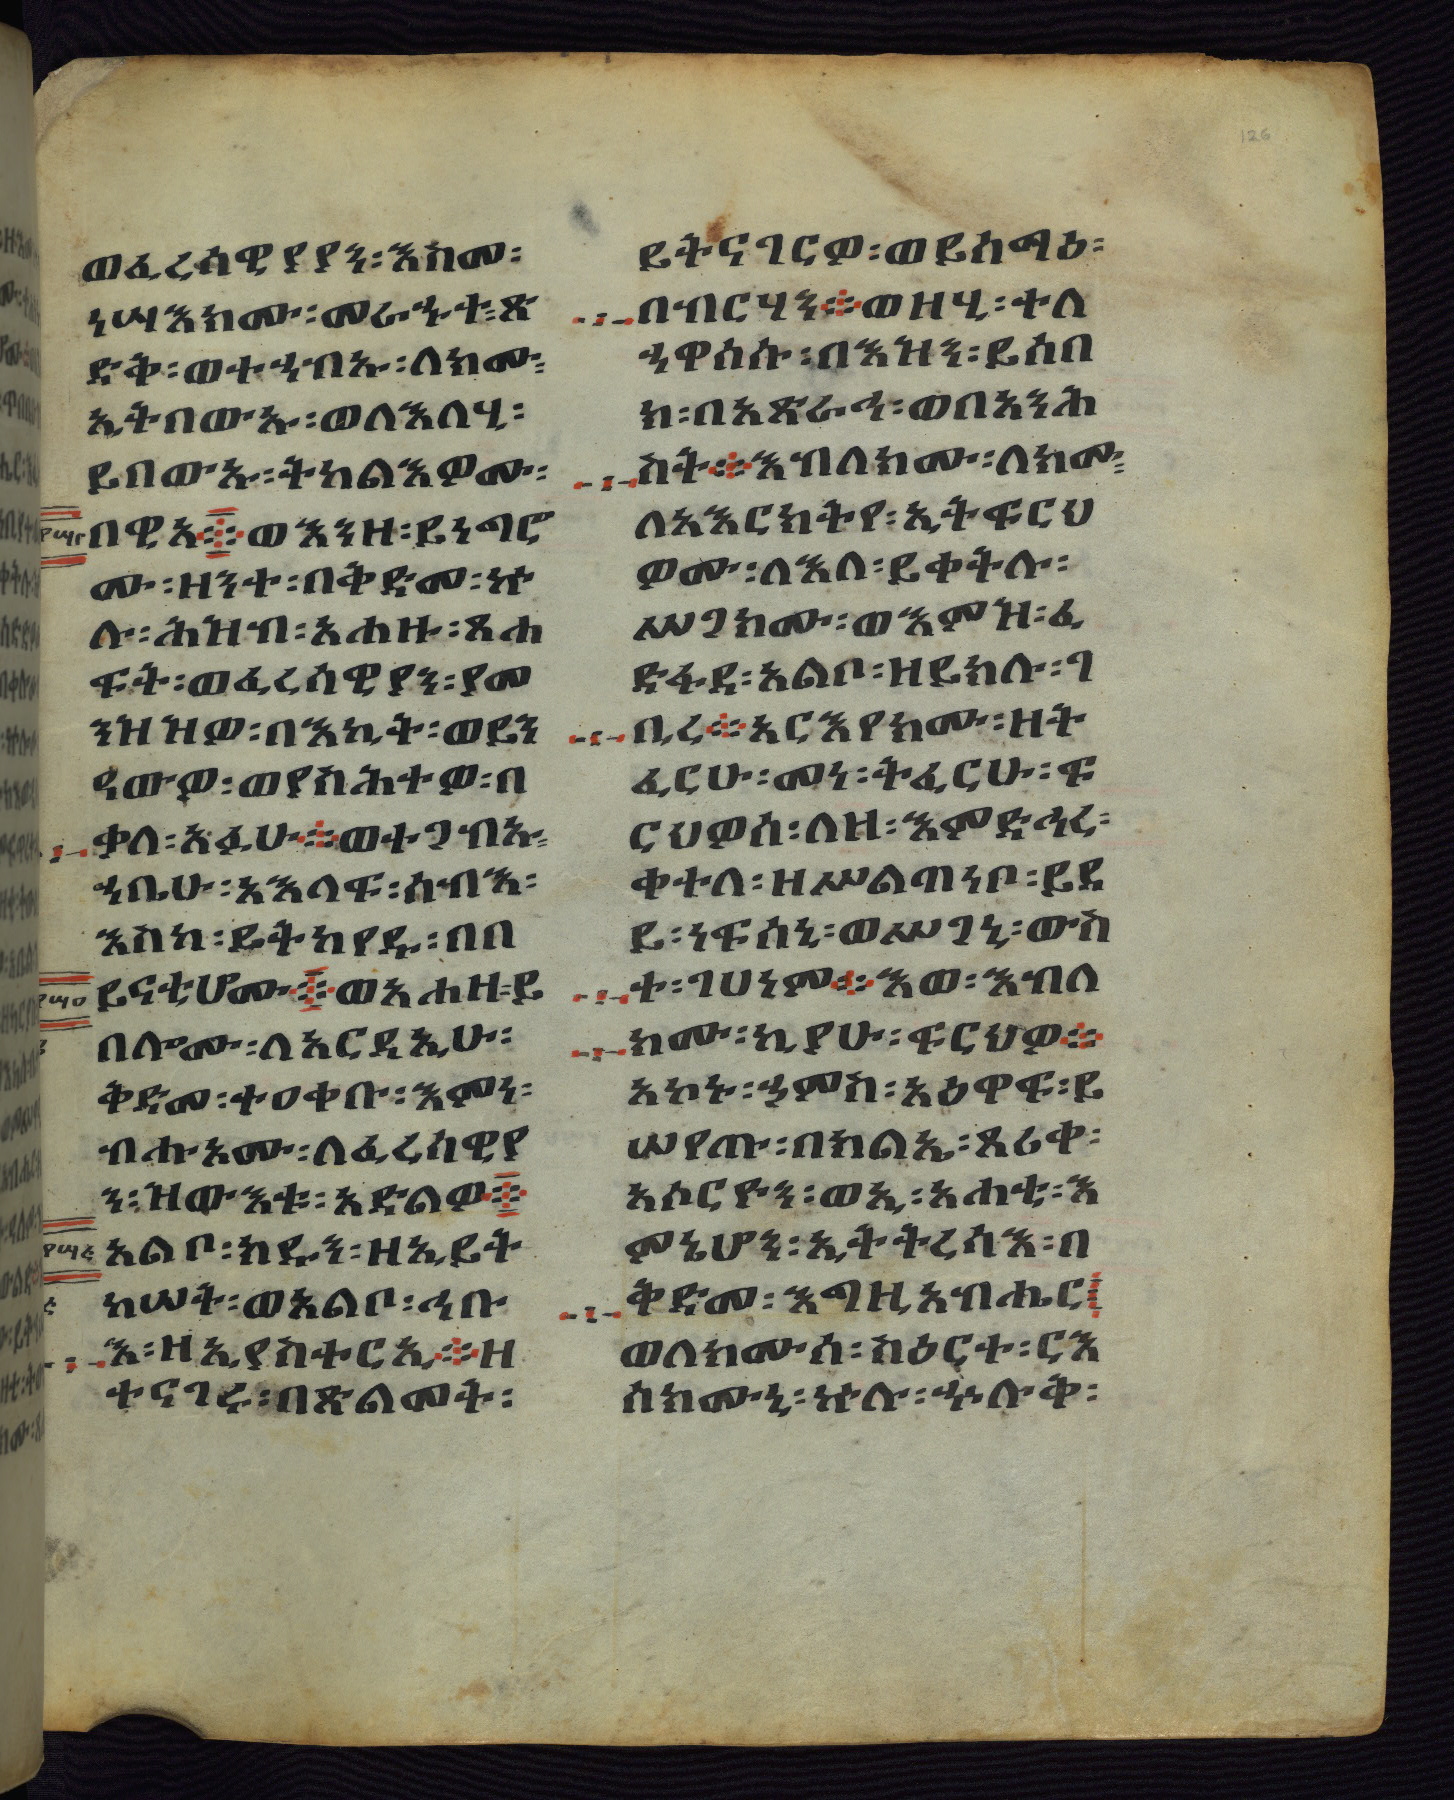 ወፈረሰዊያያን፡እስመ፡
ነሣእክሙ፡መራኁተ፡ጽ
ድቅ፡ወተኃብኡ፡ለክሙ፡
ኢትበውኡ፡ወለእለሂ፡
ይበውኡ፡ትከልእዎሙ፡
በዊአ፨ወእንዘ፡ይነግሮ
ሙ፡ዘንተ፡በቅድመ፡ኵ
ሉ፡ሕዝብ፡አሐዙ፡ጸሐ
ፍት፡ወፈረሰዊያን፡ያመ
ንዝዝዎ፡በእኪት፡ወይን
ዳውዎ፡ወያስሕተዎ፡በ
ቃለ፡አፉሁ፨ወተጋብኡ፡
ኃቤሁ፡አእላፍ፡ሰብእ፡
እስከ፡ይትከየዱ፡በበ
ይናቲሆሙ፨ወአሐዘ፡ይ
በሎሙ፡ለአርዳኢሁ፡
ቅድመ፡ተዐቀቡ፡እምነ፡
ብሑአሙ፡ለፈረሰዊያ
ን፡ዝውእቱ፡አድልዎ፨
አልቦ፡ክዱን፡ዘኢይት
ከሠት፡ወአልቦ፡ኅቡ
እ፡ዘኢያስተርኢ፨ዘ
ተናገሩ፡በጽልመት፡
ይትናገርዎ፡ወይሰማዕ፡
በብርሃን፨ወዘሂ፡ተለ
ኃዋሰሱ፡በእዝን፡ይሰበ
ክ፡በአጽራኅ፡ወበአንሕ
ስት፨እብለክሙ፡ለክሙ፡
ለአእርክትየ፡ኢትፍርህ
ዎሙ፡ለእለ፡ይቀትሉ፡
ሥጋክሙ፡ወእምዝ፡ፈ
ድፋደ፡አልቦ፡ዘይክሉ፡ገ
ቢረ፨አርእየክሙ፡ዘት
ፈርሁ፡መነ፡ትፈርሁ፡ፍ
ርህዎሰ፡ለዘ፡እምድኅረ፡
ቀተለ፡ዘሥልጣነቦ፡ይደ
ይ፡ነፍሰኒ፡ወሥጋኒ፡ውስ
ተ፡ገሀነም፨እወ፡እብለ
ክሙ፡ኪያሁ፡ፍርህዎ፨
አኮኑ፡ኃምስ፡አዕዋፍ፡ይ
ሠየጡ፡በክልኤ፡ጸሪቀ፡
አሶርዮን፡ወኢ፡አሐቲ፡እ
ምኔሆን፡ኢትትረሳእ፡በ
ቅድመ፡እግዚአብሔር፨
ወለክሙሰ፡ስዕርተ፡ርእ
ስክሙኒ፡ኵሉ፡ኍሉቅ፡